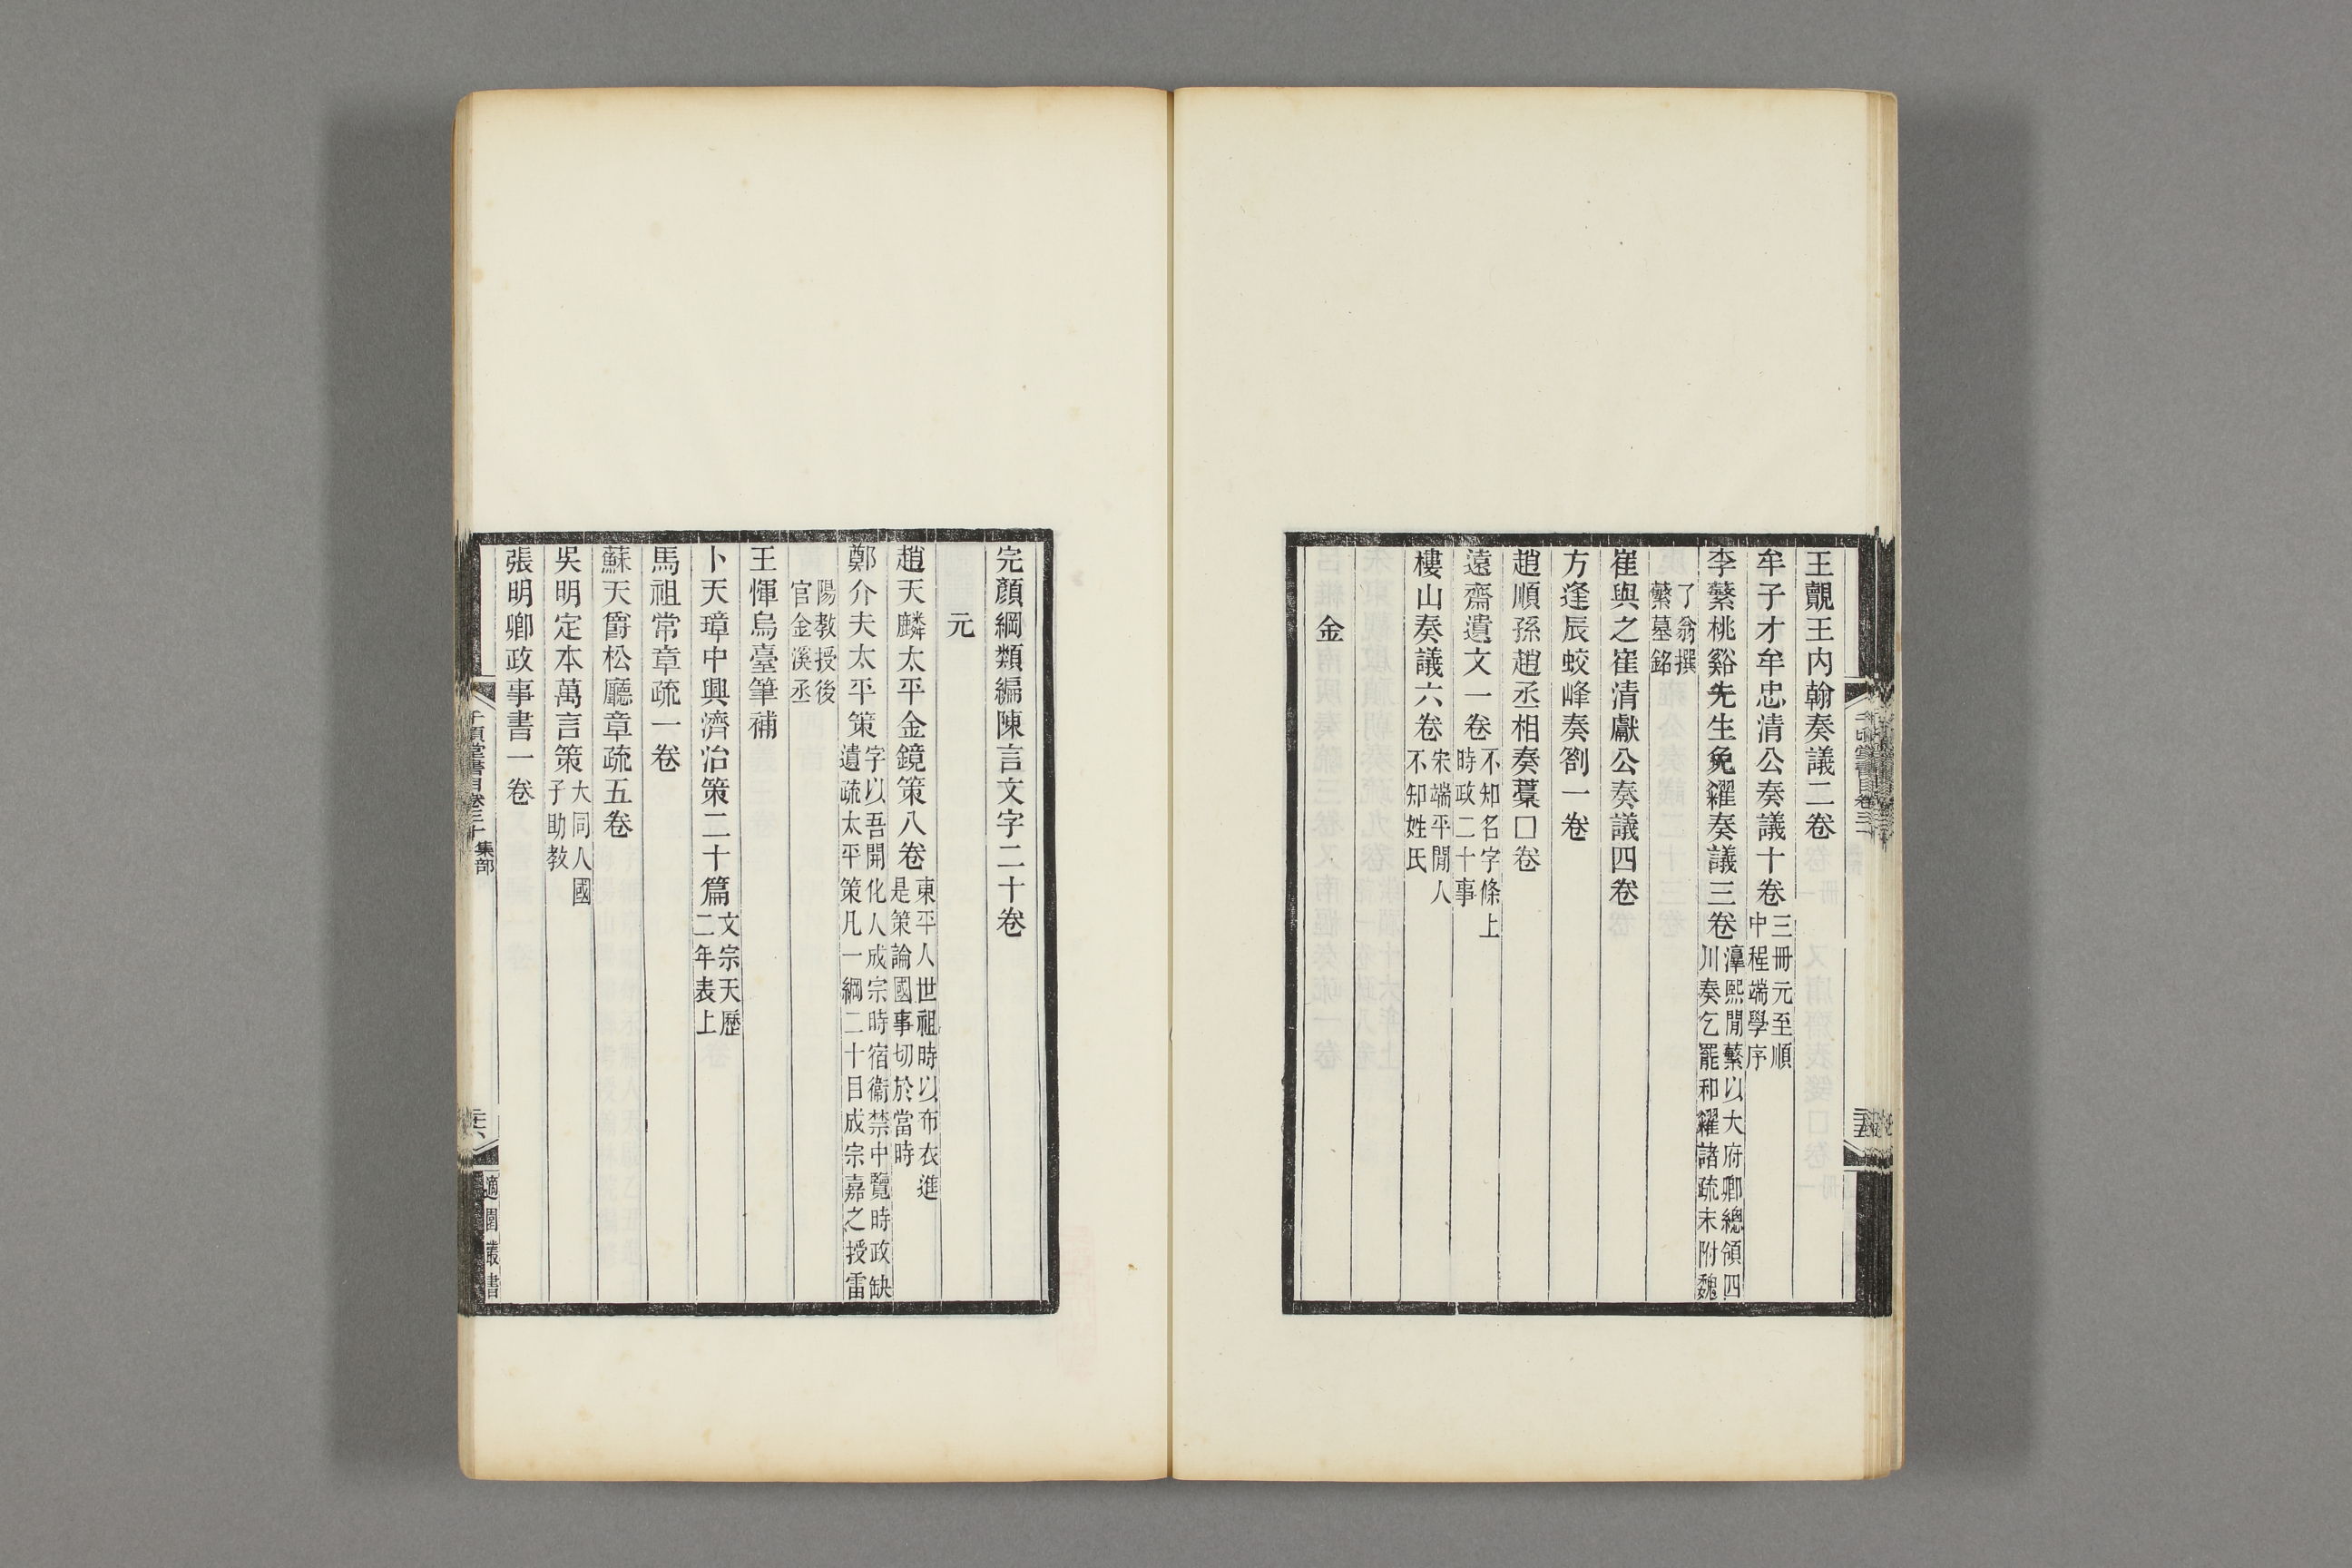 王覿王内翰奏議二卷
牟子才牟忠清公奏議十卷三冊元至順中程端學序
李蘩桃谿先生免糴奏議三卷淳熙閒蘩以大府卿總領四川奏乞罷和糴諸疏末附魏
了翁撰蘩墓銘
崔與之崔清獻公奏議四卷
方逢辰蛟峰奏劄一卷
趙順孫趙丞相奏藁□卷
遠齋遺文一卷不知名字條上時政二十事
樓山奏議六卷宋端平閒人不知姓氏
金
完顏綱類編陳言文字二十卷
元
趙天麟太平金鏡策八卷東平人世祖時以布衣進是策論國事切於當時
鄭介夫太平策字以吾開化人成宗時宿衞禁中覽時政缺遺疏太平策凡一綱二十目成宗嘉之授雷
陽教授後官金溪丞
王惲烏臺筆補
卜天璋中興濟治策二十篇文宗天歷二年表上
馬祖常章疏一卷
蘇天爵松廳章疏五卷
吳明定本萬言策大同人國子助教
張明卿政事書一卷
千頃堂書目卷三十 集部
適園叢書